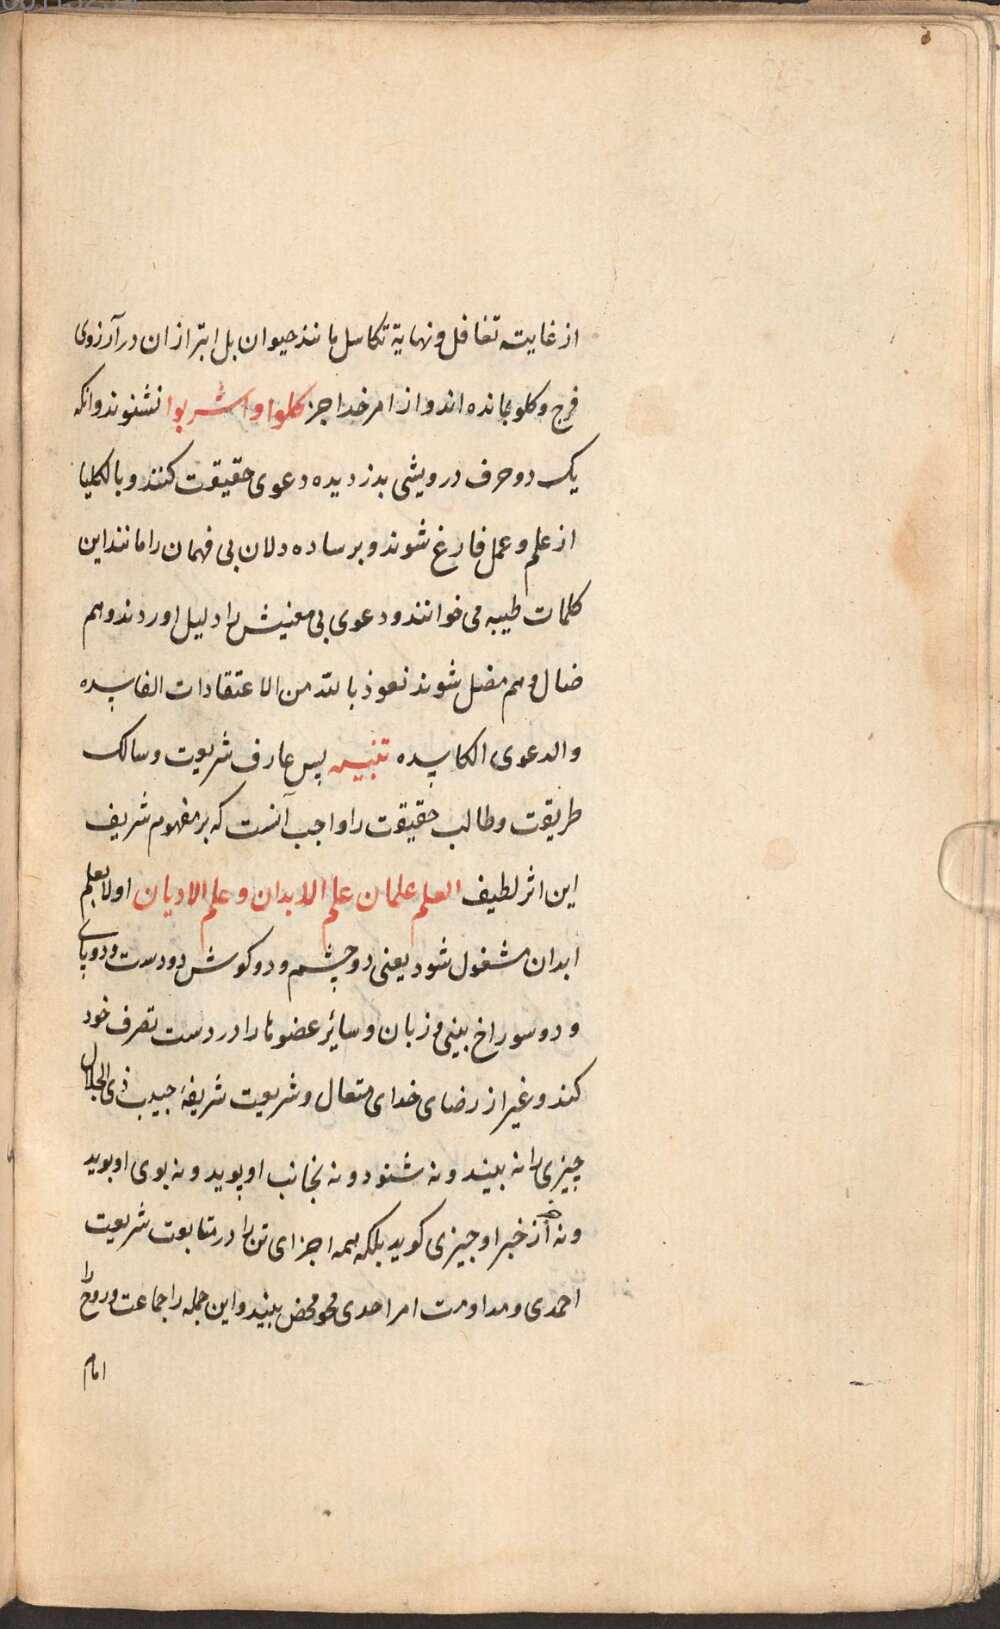 از غایت تغافل و نهایة تکاسل مانند حیوان بل ابتر ازان در آرزوی
فرج و کلو بمانده اند و از امر خدا جز کلوا و اشربوا نشنوند وانکه
یک دو حرف درویشی بدزدیده دعوی حقیقت کنند و بالکلیا
از علم و عمل فارغ شوند و بر ساده دلان بی فهمان را مانند این
کلمات طیبه می خوانند و دعوی بی معنیش را دلیل اوردند و هم
ضال و هم مضل شوند نعوذ بالله من الاعتقادات الفاسده
والدعوی الکاسده تنبیه پس عارف شریعت و سالک
طریقت و طالب حقیقت را واجب آنست که بر مفهوم شریف
این اثر لطیف العلم علمان علم الابدان و علم الادیان اولا بعلم
ابدان مشغول شود یعنی دو چشم و دو کوش دو دست و دو پای
و دو سوراخ بینی و زبان و سائر عضوها را در دست تصرف خود
کند و غیر از رضای خدای متعال و شریعت شریفۀ حبیب ذی الجلال
چیزی را نه بیند و نه شنود و نه بجانب او پوید و نه بوی او بوید
و نه از خبر او چیزی کوید بلکه همه اجزای تن را در متابعت شریعت
احمدی و مداومت امر احدی محو محض بیند و این جمله را جماعت و روح را
امام